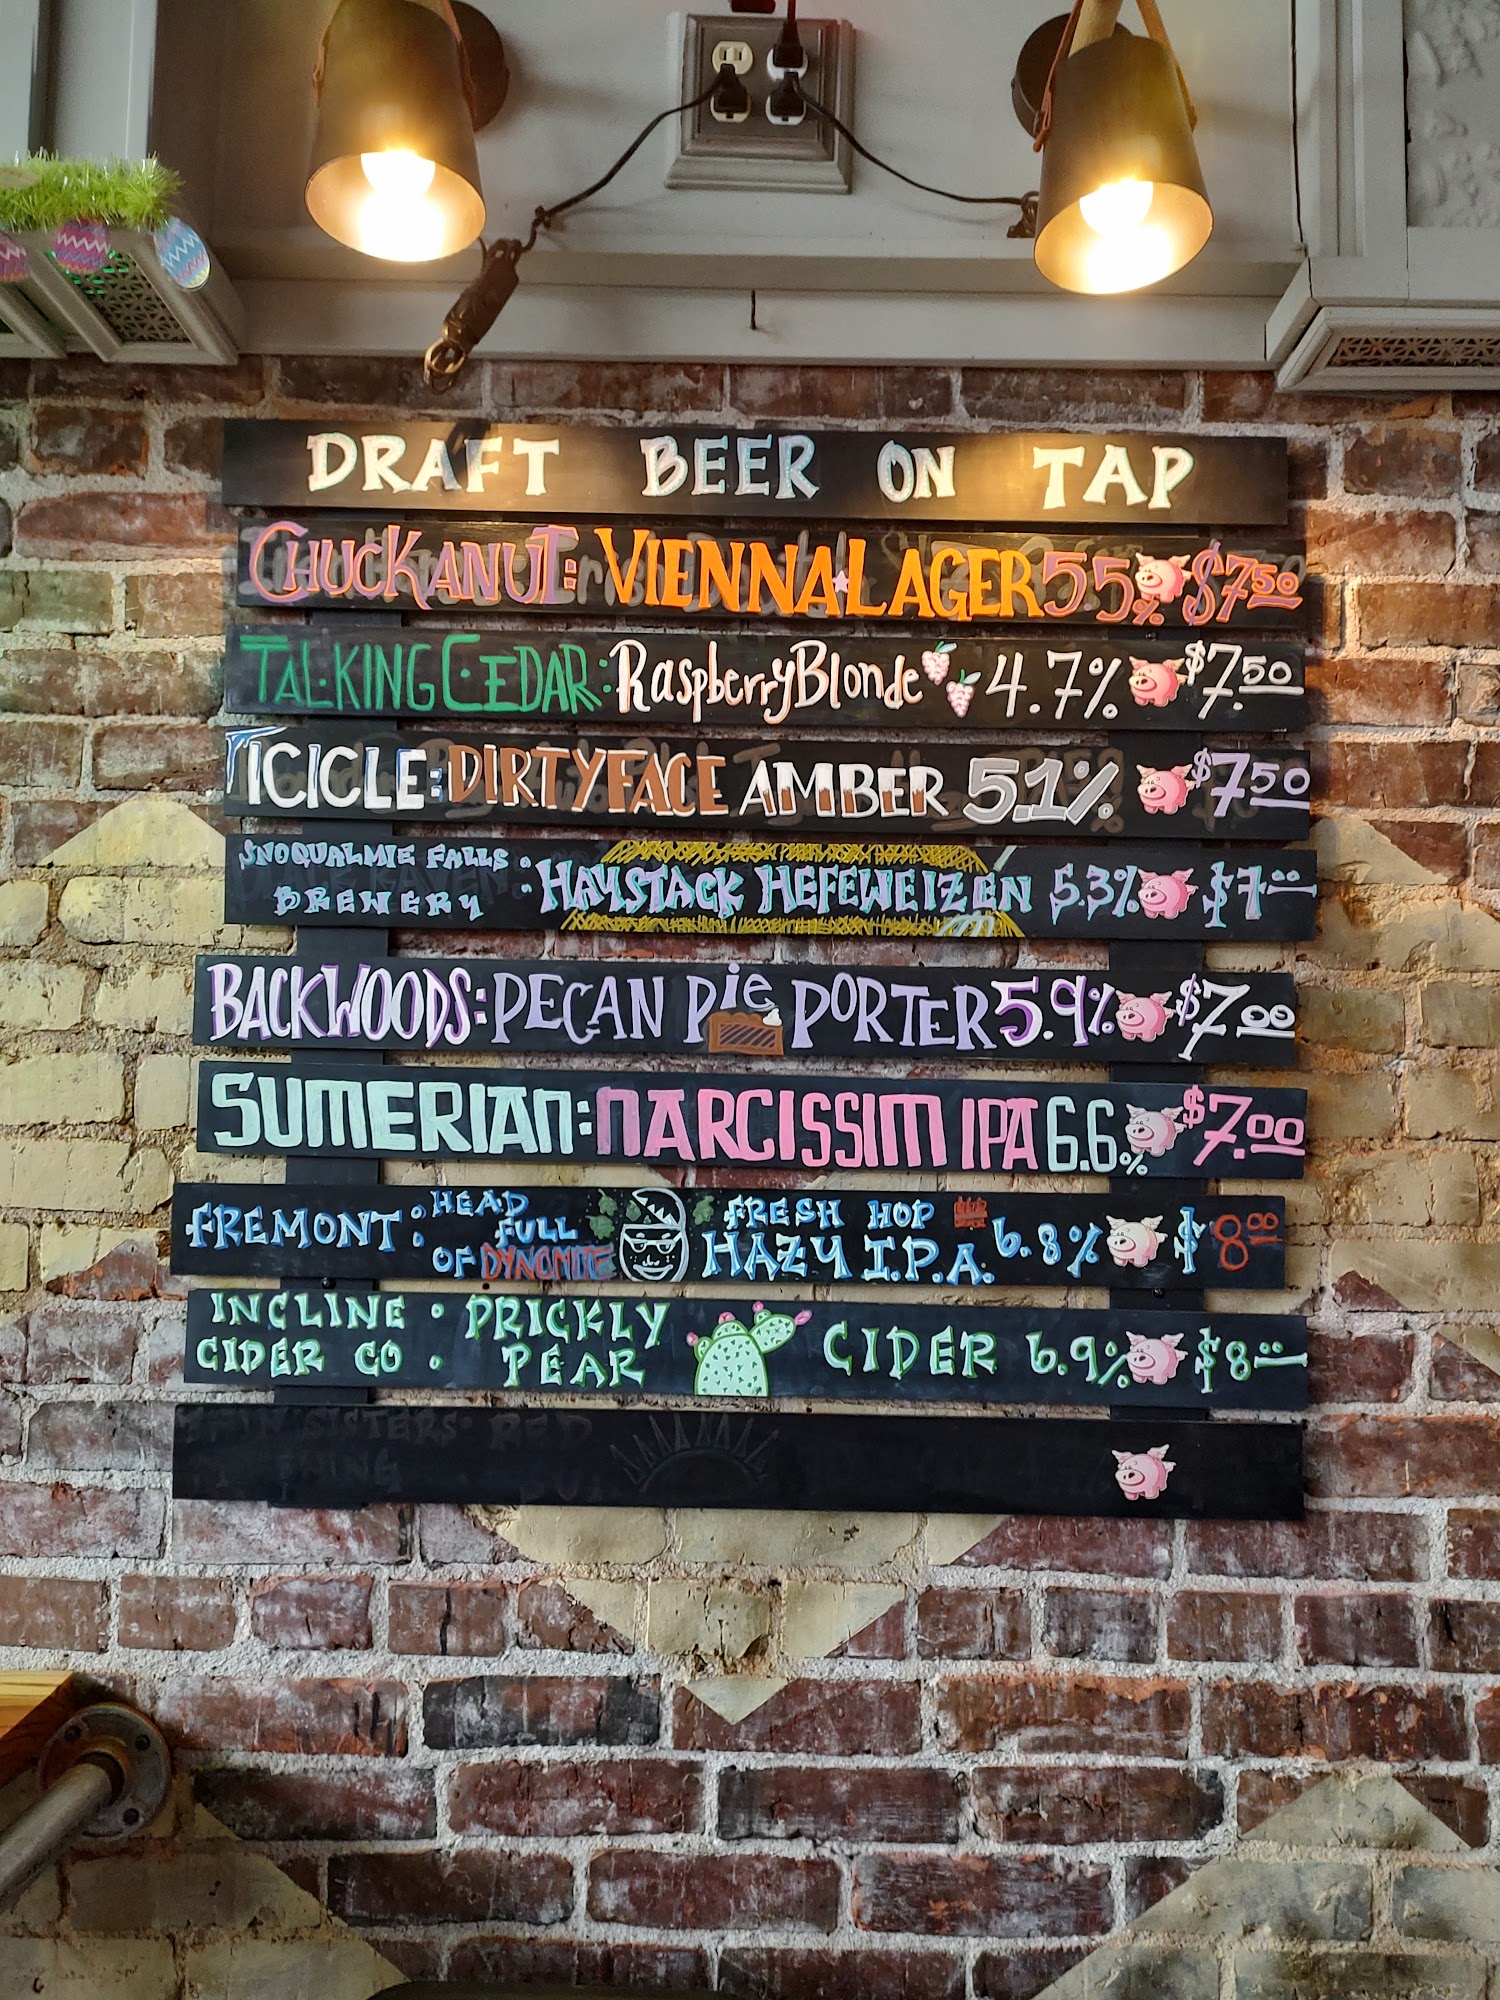 DRAFT BEER ON TAP
CHUCKANUT: VIENNA LAGER 5.5% $7.50
TALKING CEDAR: Raspberry Blonde 4.7% $7.50
ICICLE: DIRTYFACE AMBER 5.1% $7.50
SNOQUALMIE FALLS BREWERY: HAYSTACK HEFEWEIZEN 5.3% $7.00
BACKWOODS: PECAN PIE PORTER 5.9% $7.00
SUMERIAN: NARCISSIM IPA 6.6% $7.00
FREMONT: HEAD FULL OF DYNOMITE FRESH HOP HAZY I.P.A. 6.8% $8.00
INCLINE CIDER CO: PRICKLY PEAR CIDER 6.9% $8.00
SISTERS: RED